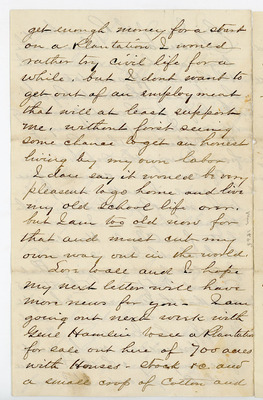 get enough money for a start
on a Plantation I would
rather try civil life for a
while. but I dont want to
get out of an employment
that will at least support
me. without first seeing
some chance to get an honest
living by my own labor
I dare say it would be very
pleasent to go home and live
my old school life over.
but I am too old now for
that and must cut my
own way out in the world.
Love to all and I hope
my next letter will have
more news for you - I am
going out next week with
Genl Hamlin to see a Plantation
for sale out here of 700 acres
with Houses - stock &c. and
a small crop of Cotton and